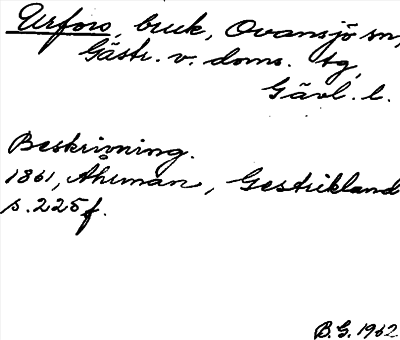 Urfors, bruk, Ovansjö sn,
Gästr. v. doms. tg,
Gävl. l.
Beskrivning.
1861, Åhrman, Gestrikland
s. 225 f.
B.G. 1962